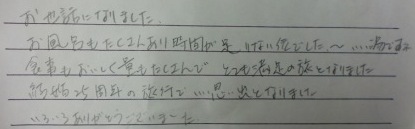 お世話になりました。
お風呂もたくさんあり時間が足りない位でした~
食事もおいしく量もたくさんで とても満足の旅となりました
結婚25周年の旅行で いい思い出となりました
いろいろありがとうございました